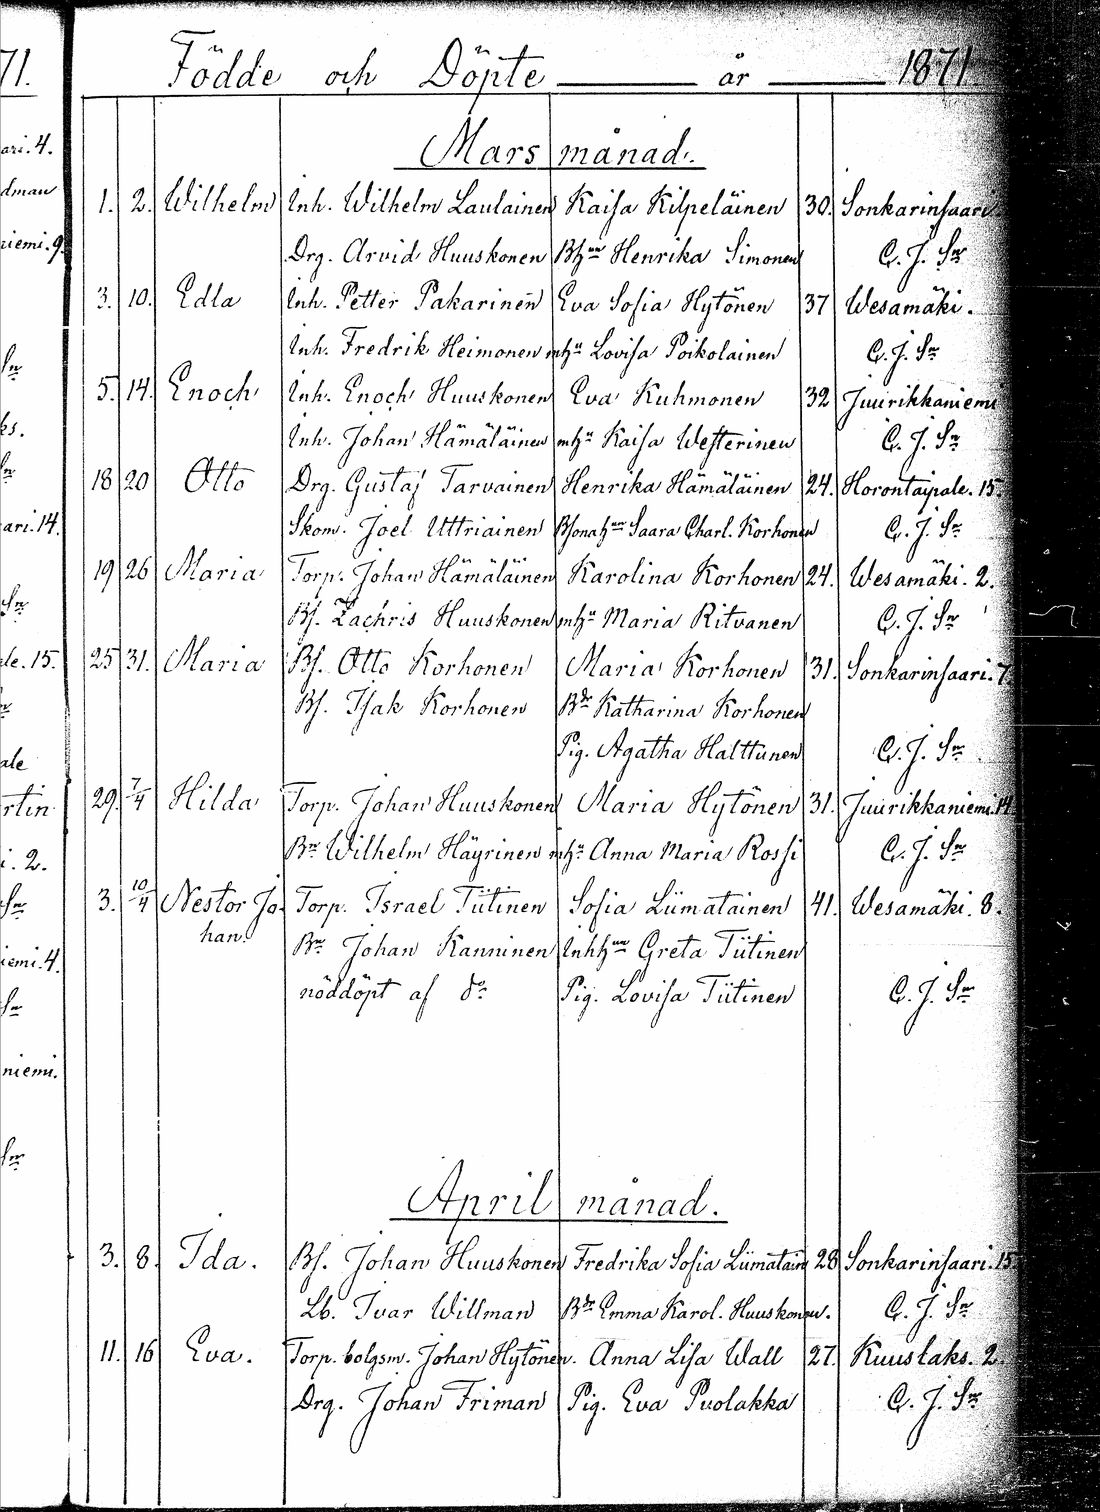 71.
Födde och Döpte år 1871
ari. 4.
Mars månad.
dman
1. 2. Wilhelm Inh. Wilhelm Laulainen Kaisa Kilpeläinen 30. Sonkarinsaari
niemi. 9.
Drg. Arvid Huuskonen Bhn Henrika Simonen C. J. Sn
3. 10. Edla Inh. Petter Pakarinen Eva Sofia Hytönen 37 Wesamäki.
Sn
Inh. Fredrik Heimonen mhu Lovisa Poikolainen C. J. Sn
5. 14. Enoch Inh. Enoch Huuskonen Eva Kuhmonen 32 Juurikkaniemi
ks.
Inh. Johan Hämäläinen mhu Kaisa Westerinen C. J. Sn
Sn
18 20 Otto Drg. Gustaf Tarvainen Henrika Hämäläinen 24. Horontaipale. 15.
ari. 14.
Skom. Joel Uttriainen Saara Charl. Korhonen C. J. Sn
19 26 Maria Torp. Johan Hämäläinen Karolina Korhonen 24. Wesamäki. 2.
Sn
Bs. Zachris Huuskonen mhu Maria Ritvanen C. J. Sn
le. 15. 25 31. Maria Bs. Otto Korhonen Maria Korhonen 31. Sonkarinsaari. 7
Bs. Isak Korhonen Bdr Katharina Korhonen
Pig. Agatha Halttunen C. J. Sn
ale
29. 7/4 Hilda Torp. Johan Huuskonen Maria Hytönen 31. Juurikkaniemi. 14
rtin
i. 2.
Bn Wilhelm Häyrinen mhu Anna Maria Rossi C. J. Sn
Sn
3. 10/4 Nestor Jo- Torp. Israel Tiitinen Sofia Liimatainen 41. Wesamäki. 8.
han. Bn Johan Kanninen Inhhn Greta Tiitinen
iemi. 4.
nöddöpt af do Pig. Lovisa Tiitinen C. J. Sn
Sn
niemi.
Sn
April månad.
3. 8. Ida. Bs. Johan Huuskonen Fredrika Sofia Liimatain 28 Sonkarinsaari. 15
Lb. Ivar Willman Bdr Emma Karol. Huuskonen. C. J. Sn
11. 16 Eva. Torp. bolgsm. Johan Hytönen. Anna Lisa Wall 27. Kuuslaks. 2.
Drg. Johan Friman Pig. Eva Puolakka C. J. Sn